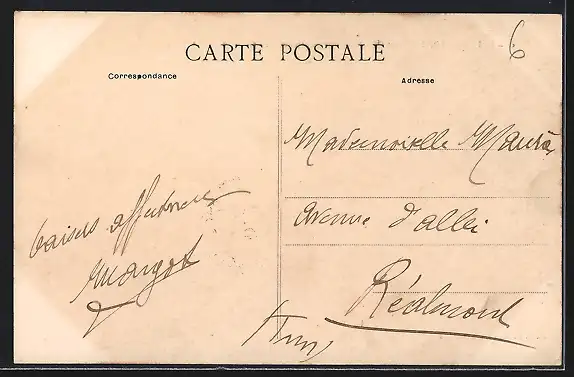 CARTE POSTALE
6
Correspondance
Adresse
Mademoiselle Maura
Avenue d'albi
Réalmont
Tarn
baisers affectueux
Margot